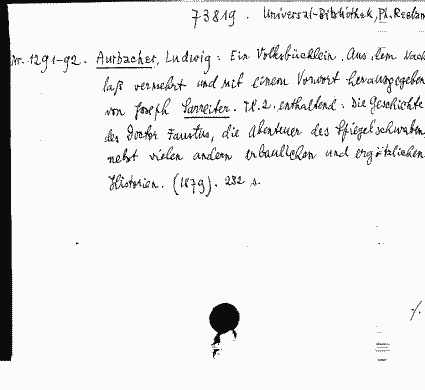 73819. Universal-Bibliothek, Ph. Reclam
Nr. 1291-92. Aurbacher, Ludwig: Ein Volksbüchlein. Aus dem Nach
laß vermehrt und mit einem Vorwort herausgegeben
von Joseph Sarreiter. Tl. 2. enthaltend: Die Geschichte
des Doctor Faustus, die Abenteuer des Spiegelschwaben,
nebst vielen andern erbaulichen und ergötzlichen
Historien. (1879). 232 s.